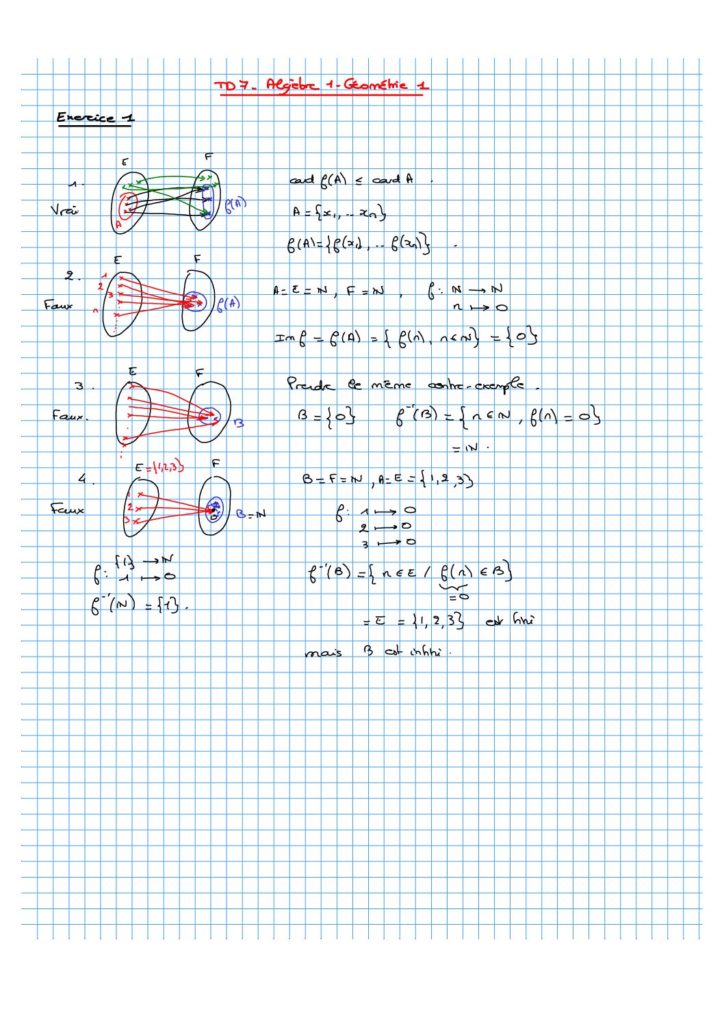 TD 7 - Algèbre 1 - Géométrie 1
Exercice 1
1.
Vrai
E
F
A
f(A)
card f(A) ≤ card A.
A = {x₁, .. xₙ}
f(A) = {f(x₁), .. f(xₙ)}.
2.
Faux
E
F
1
2
3
n
f(A)
A = E = ℕ, F = ℕ, f: ℕ → ℕ
n ↦ 0
Im f = f(A) = {f(n), n ∈ ℕ} = {0}
3.
Faux.
E
F
B
Prendre le même contre-exemple.
B = {0} f⁻¹(B) = {n ∈ ℕ, f(n) = 0}
= ℕ.
4.
Faux
E = {1,2,3}
F
1
2
3
0
B = ℕ
B = F = ℕ, A = E = {1, 2, 3}
f: 1 ↦ 0
2 ↦ 0
3 ↦ 0
f: {1} → ℕ
1 ↦ 0
f⁻¹(ℕ) = {1}.
f⁻¹(B) = {n ∈ E / f(n) ∈ B}
= 0
= E = {1, 2, 3} est fini
mais B est infini.